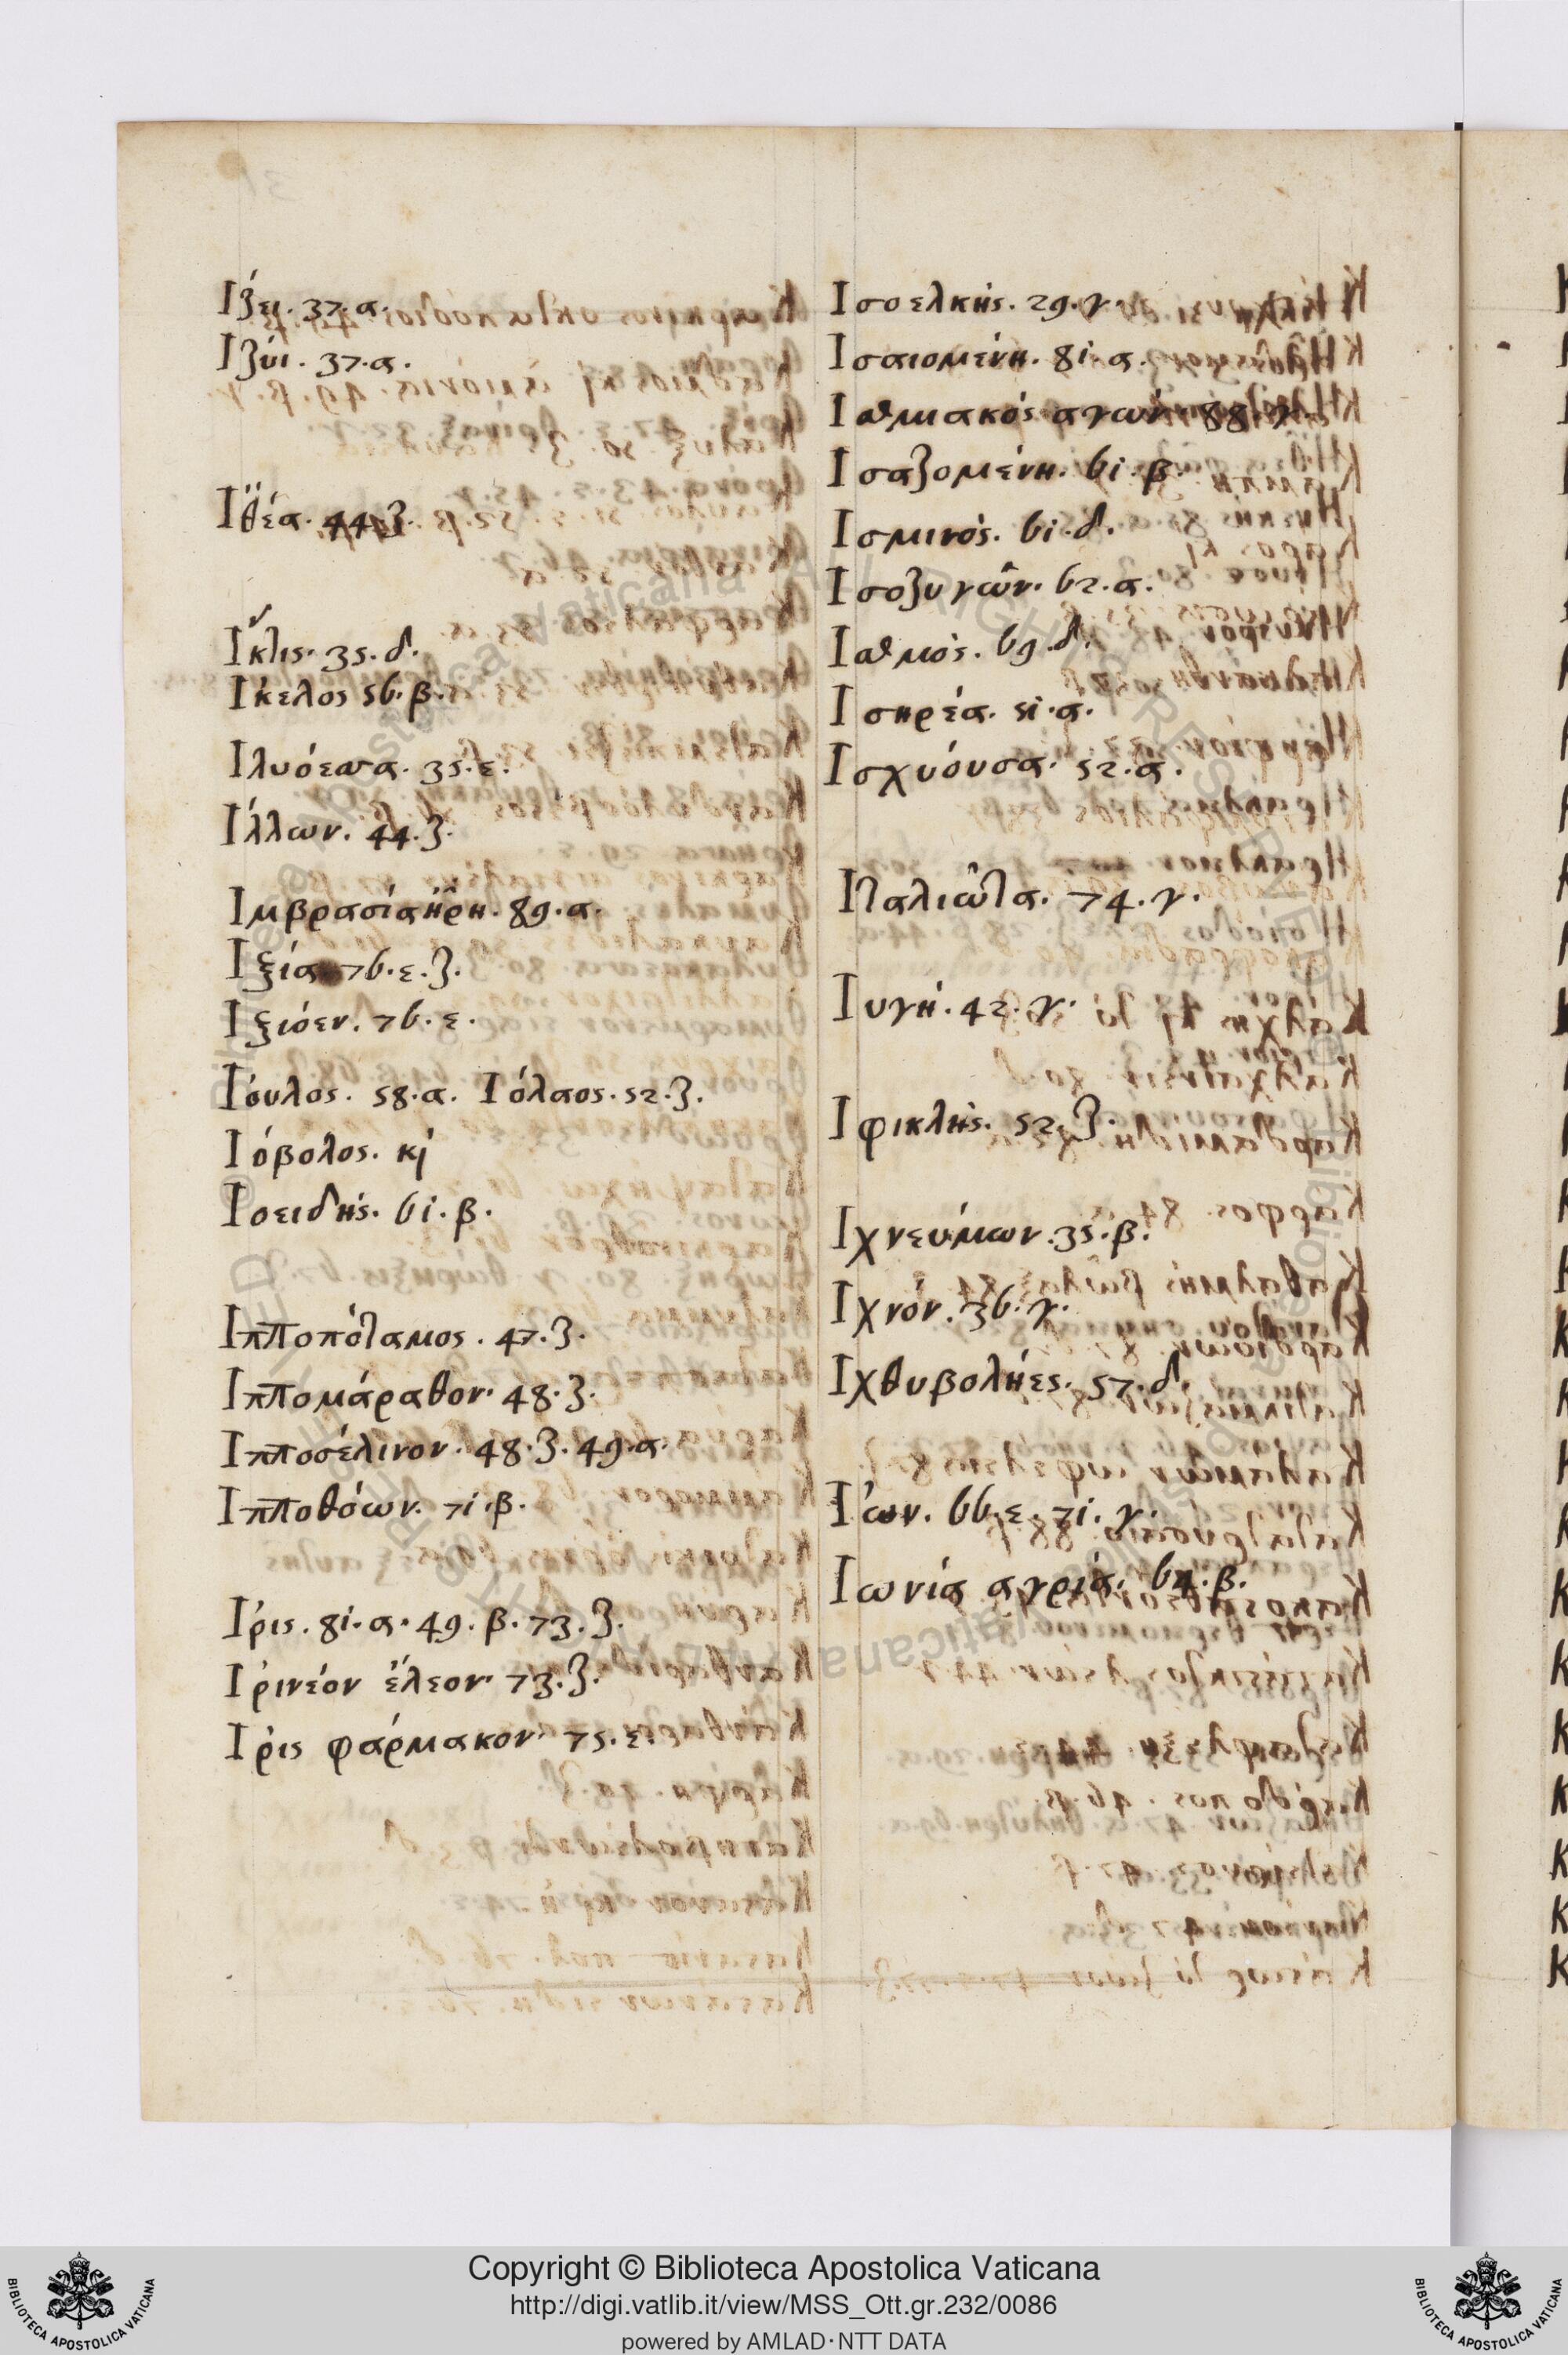 Ίζει. 37. α.
Ιζύι. 37. α.
Ἰθέα. 44. ζ.
Ἴκτις. 35. δ.
Ἰκελος 56. β.
Ιλυόεσσα. 35. ε.
Ιλλων. 44. ζ.
Ιμβρασία ἥρη. 89. α.
Ιξία 76. ε. ζ.
Ιξιόεν. 76. ε.
Ιόυλος. 58. α. Ιόλαος. 52. ζ.
Ιόβολος. κἰ
Ιοειδής. 61. β.
Ιπποπόταμος. 47. ζ.
Ιππομάραθον. 48. ζ.
Ιπποσέλινον. 48. ζ. 49. α.
Ιπποθόων. 71. β.
Ιρις. 81. α. 49. β. 73. ζ.
Ιρινέον ἔλεον. 73. ζ.
Ιρις φάρμακον. 75. ε.
Ισοελκής. 29. γ.
Ισαιομένη. 81. α.
Ισθμιακός αγων. 88. γ.
Ισαζομένη. 61. β.
Ισμινός. 61. δ.
Ισοζυγῶν. 62. α.
Ισθμός. 69. δ.
Ισηρέα. 51. α.
Ισχυόυσα. 52. α.
Ιταλιῶτα. 74. γ.
Ιυγή. 42. γ.
Ιφικλής. 52. ζ.
Ιχνεύμων. 35. β.
Ιχνόν. 36. γ.
Ιχθυβολήες. 57. δ.
Ιών. 66. ε. 71. γ.
Ιωνία αγρία. 64. β.
Copyright © Biblioteca Apostolica Vaticana
http://digi.vatlib.it/view/MSS_Ott.gr.232/0086
powered by AMLAD·NTT DATA
BIBLIOTECA APOSTOLICA VATICANA
BIBLIOTECA APOSTOLICA VATICANA